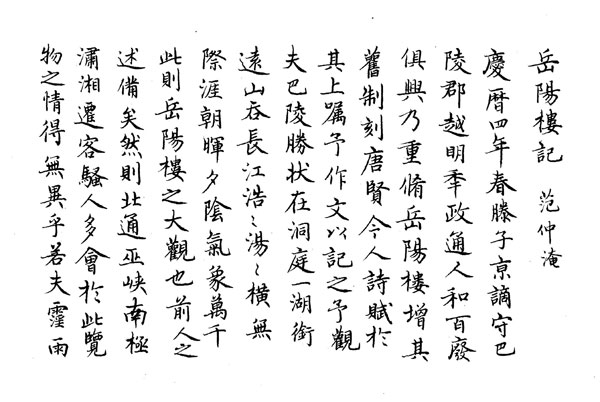 岳陽樓記　范仲淹
慶曆四年春滕子京謫守巴
陵郡越明秊政通人和百廢
俱興乃重脩岳陽樓增其
舊制刻唐賢今人詩賦於
其上囑予作文以記之予觀
夫巴陵勝狀在洞庭一湖銜
遠山吞長江浩〻湯〻橫無
際涯朝暉夕陰氣象萬千
此則岳陽樓之大觀也前人之
述備矣然則北通巫峽南極
瀟湘遷客騷人多會於此覽
物之情得無異乎若夫霪雨